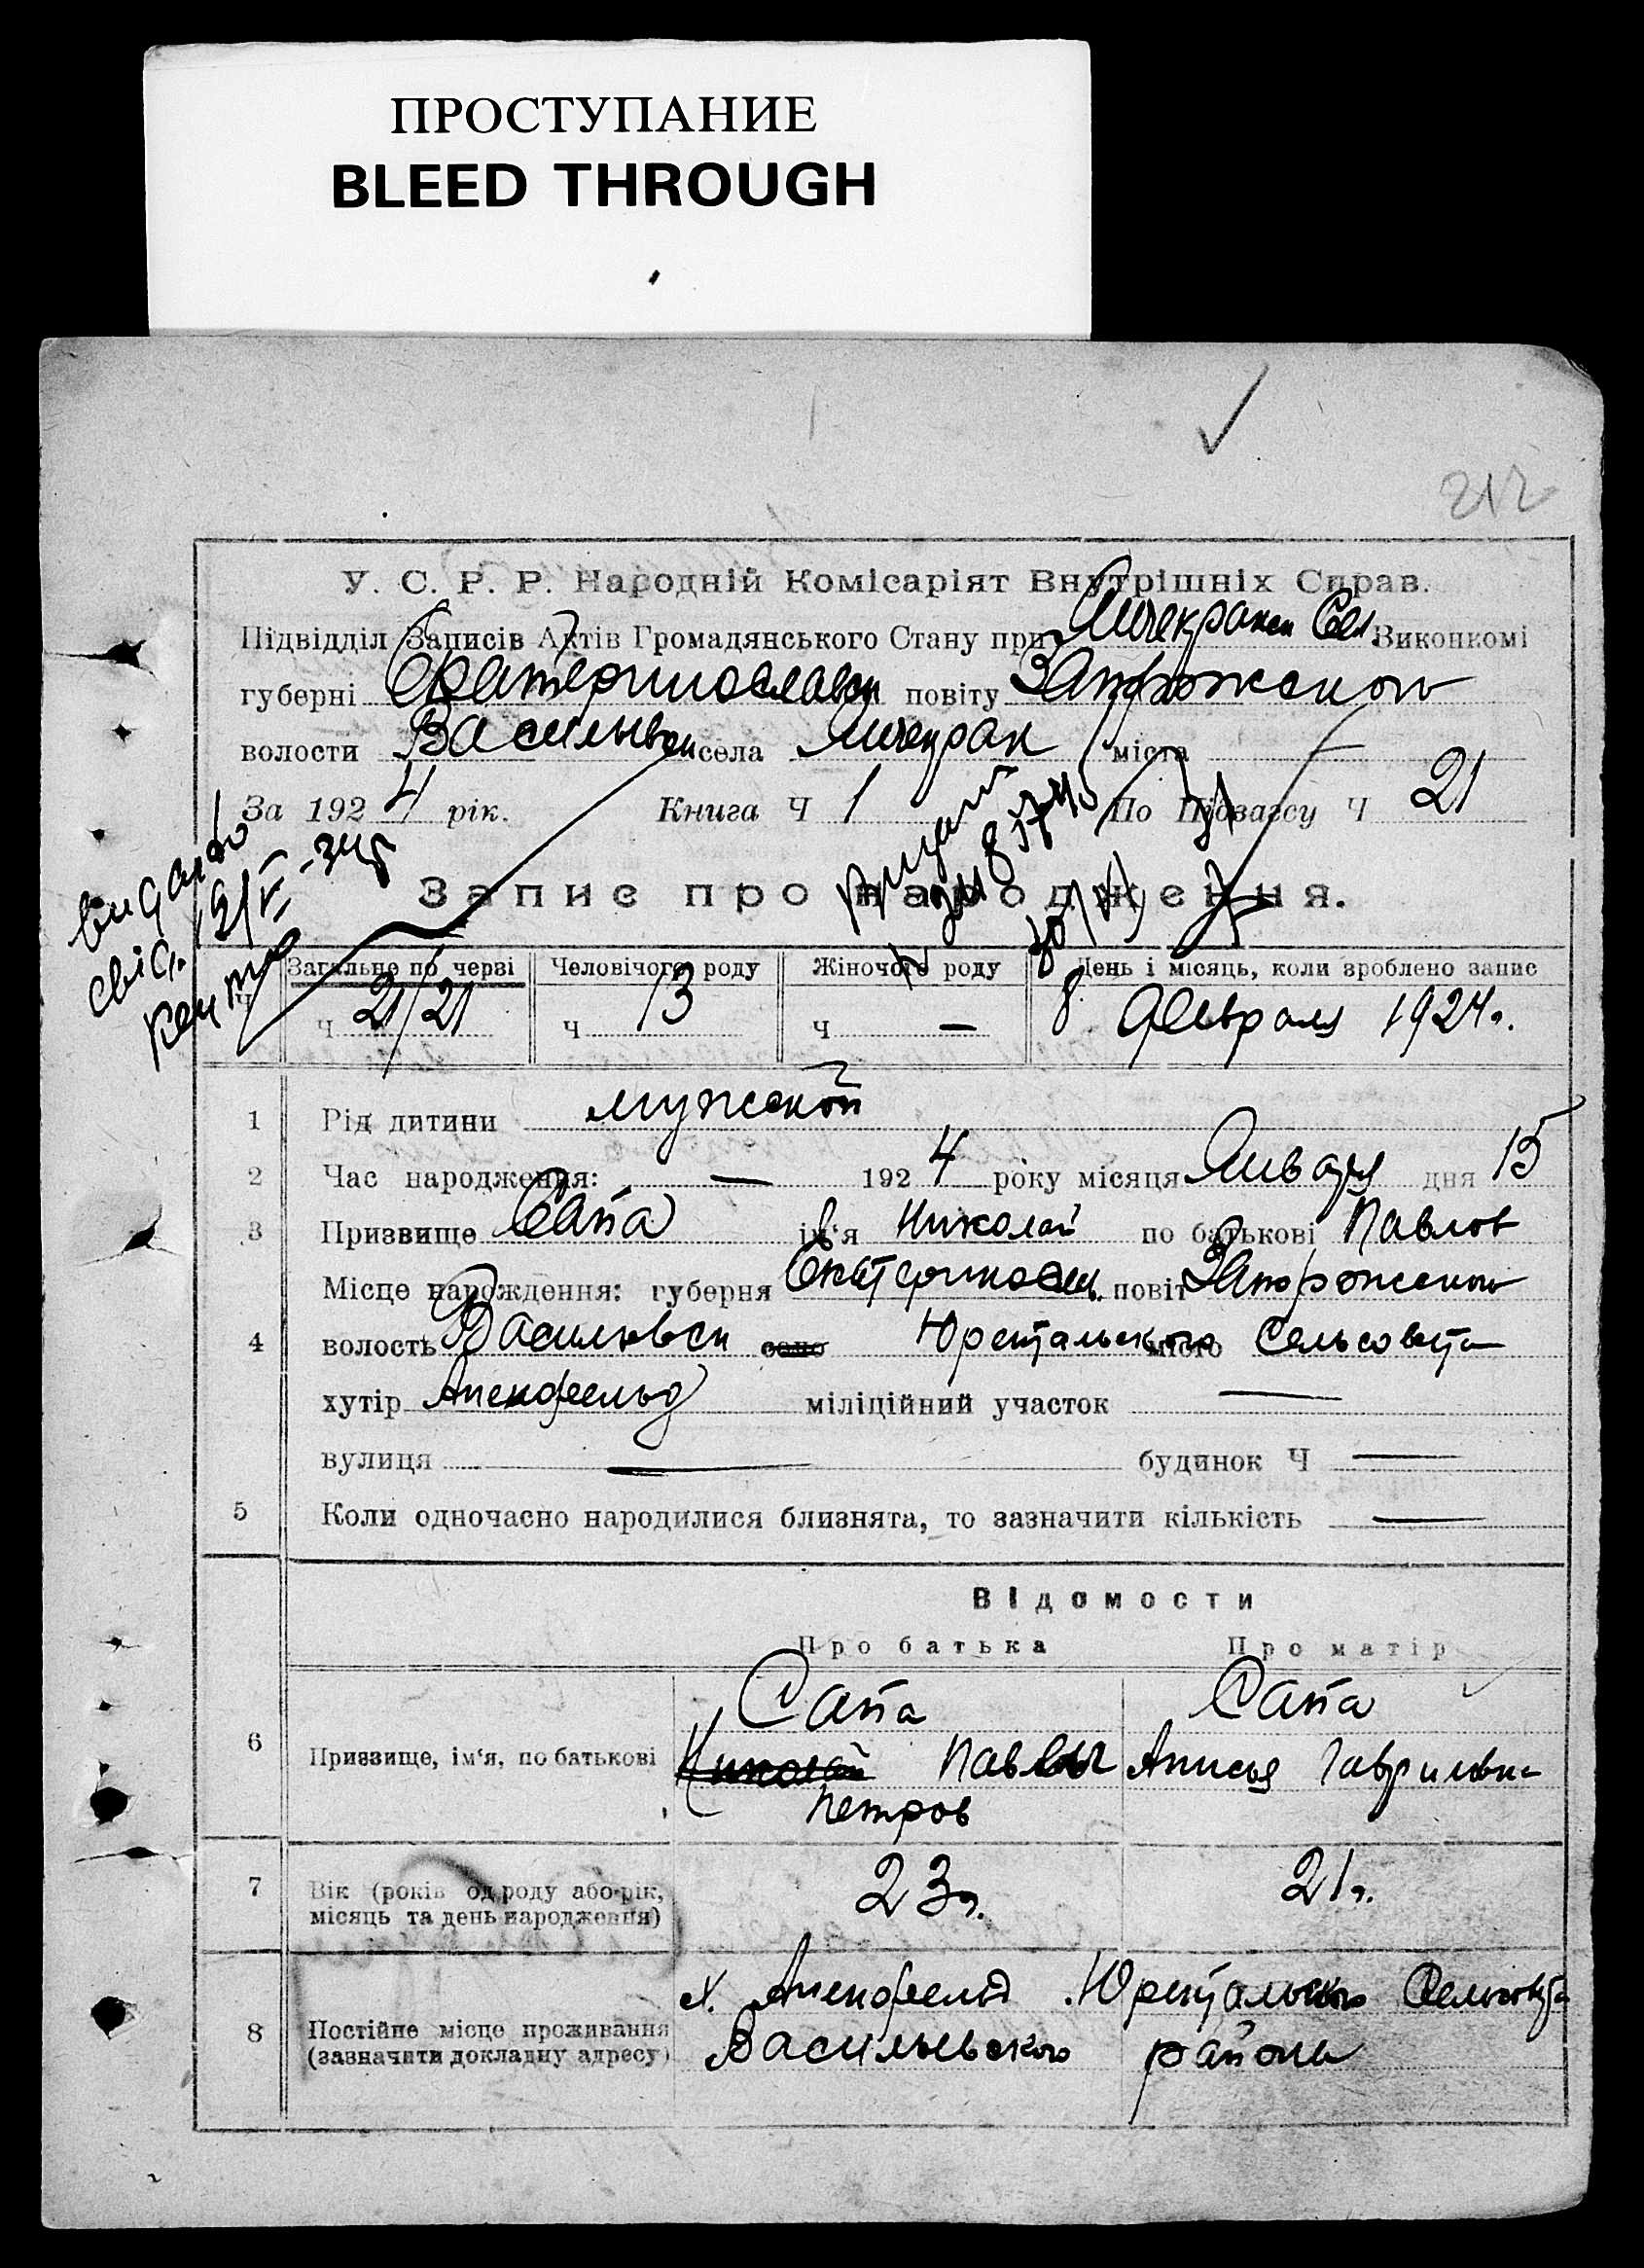 ПРОСТУПАНИЕ
BLEED THROUGH
212
У. С. Р. Р. Народній Комісаріят Внутрішніх Справ.
Підвідділ Записів Актів Громадянського Стану при Янчекракск Сел. Виконкомі
губерні Екатеринославск повіту Запорожского
волости Васильевск села Янчекрак міста —
За 1924 рік. Книга Ч 1 По Ч 21
видано
свід.
Запис про народження.
Загальне по черзі Человічого роду Жіночого роду День і місяць, коли зроблено запис
Ч 21/21 Ч 13 Ч — 8 февраля 1924г.
1 Рід дитини мужской
2 Час народження: — 1924 року місяця Января дня 15
3 Призвище Сапа ім'я Николай по батькові Павлов
Місце нарождення: губерня Екатеринослав. повіт Запорожского
4 волость Васильевск село Юрстальского місто Сельсовета
хутір Апенфельд міліційний участок —
вулиця — будинок Ч —
5 Коли одночасно народилися близнята, то зазначити кількість —
Відомости
Про батька Про матір
Сапа Сапа
6 Призвище, ім'я, по батькові Николай Павел Анисья Гавриловна
Петров
7 Вік (років од роду або рік, 23г. 21г.
місяць та день народження)
х. Апенфельд Юрстальского Сельсовета
8 Постійне місце проживання
(зазначити докладну адресу) Васильевского района